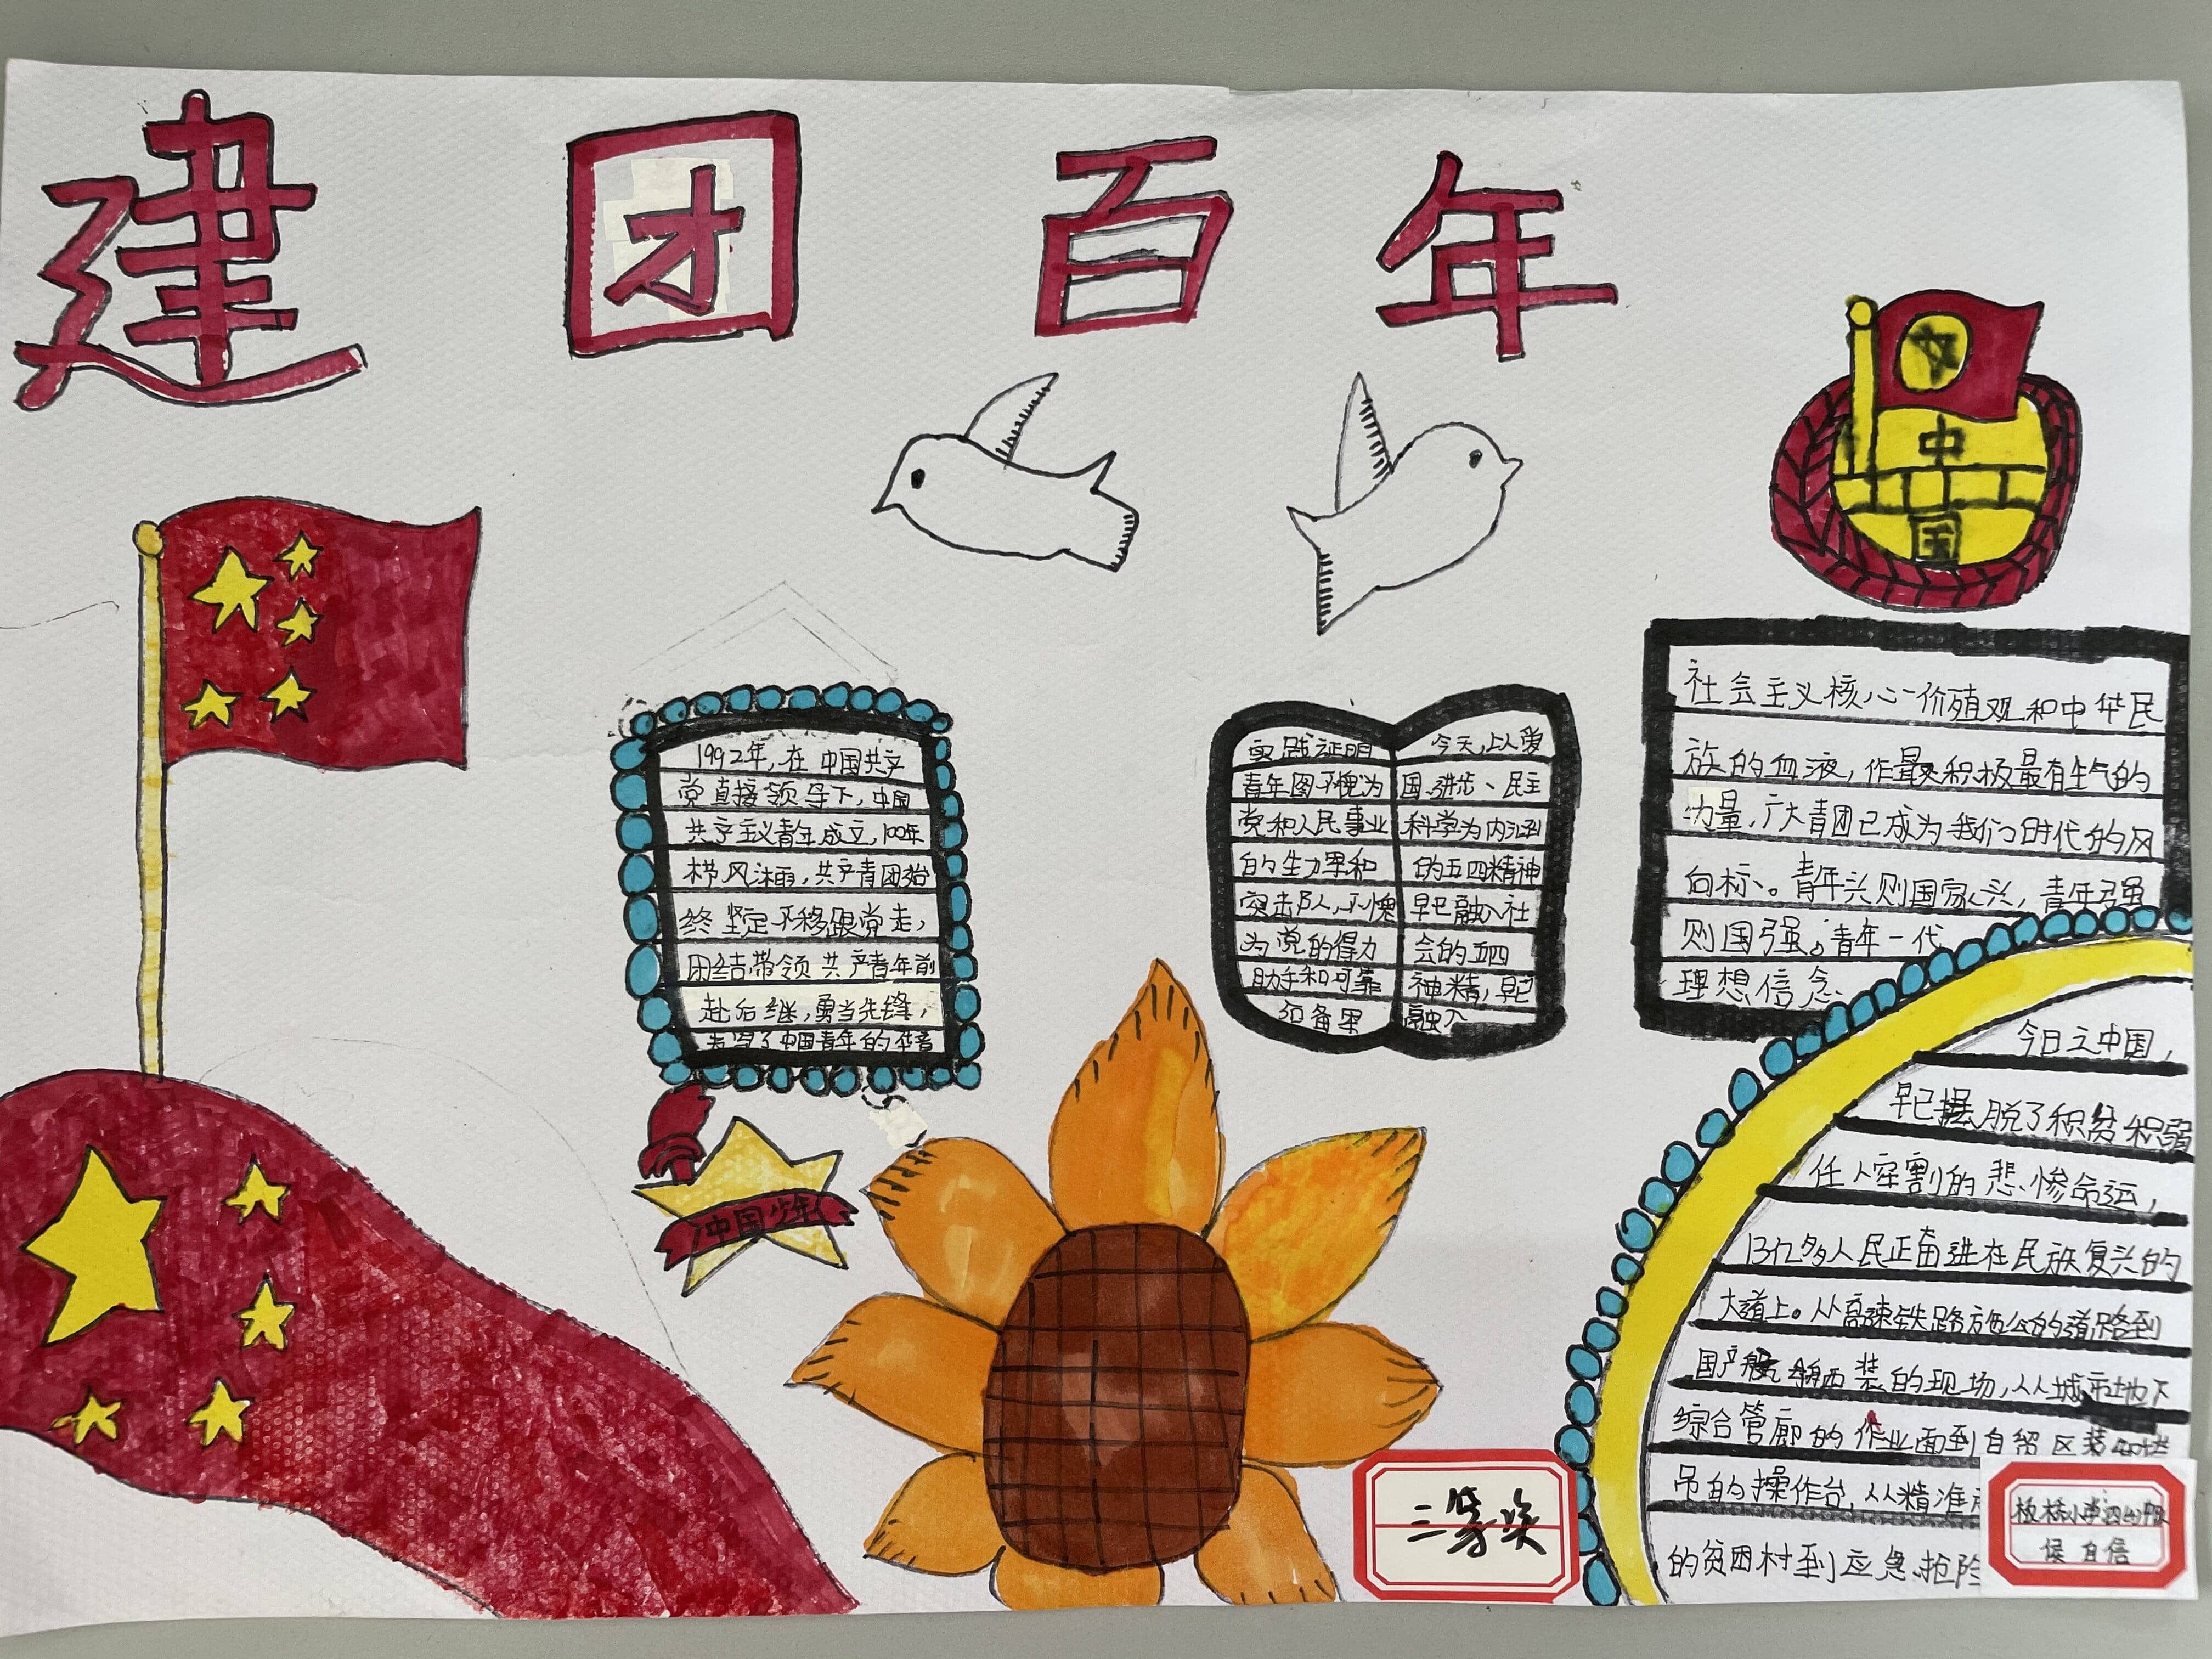 建团百年
中
国
1992年,在中国共产
党直接领导下,中国
共产主义青年成立,100年
栉风沐雨,共产青团始
终坚定不移跟党走,
团结带领共产青年前
赴后继,勇当先锋,
书写了中国青年的华章
实践证明
青年团不愧为
党和人民事业
的生力军和
突击队,不愧
为党的得力
助手和可靠
后备军
今天,以爱
国、进步、民主
科学为内涵
的五四精神
早已融入社
会的五四
神精,早已
融入
社会主义核心价殖观和中华民
族的血液,作最积极最有生气的
力量,广大青团已成为我们时代的风
向标。青年兴则国家兴,青年强
则国强。青年一代
理想信念
今日之中国,
早已摆脱了积贫积弱
任人宰割的悲惨命运,
13亿多人民正奋进在民族复兴的
大道上。从高速铁路施工的道路到
国产 的现场,从城市地下
综合管廊的作业面到自贸区装
吊的操作台,从精准
的贫困村到应急抢险
中国少年
三等奖
板桥小学四
侯自信